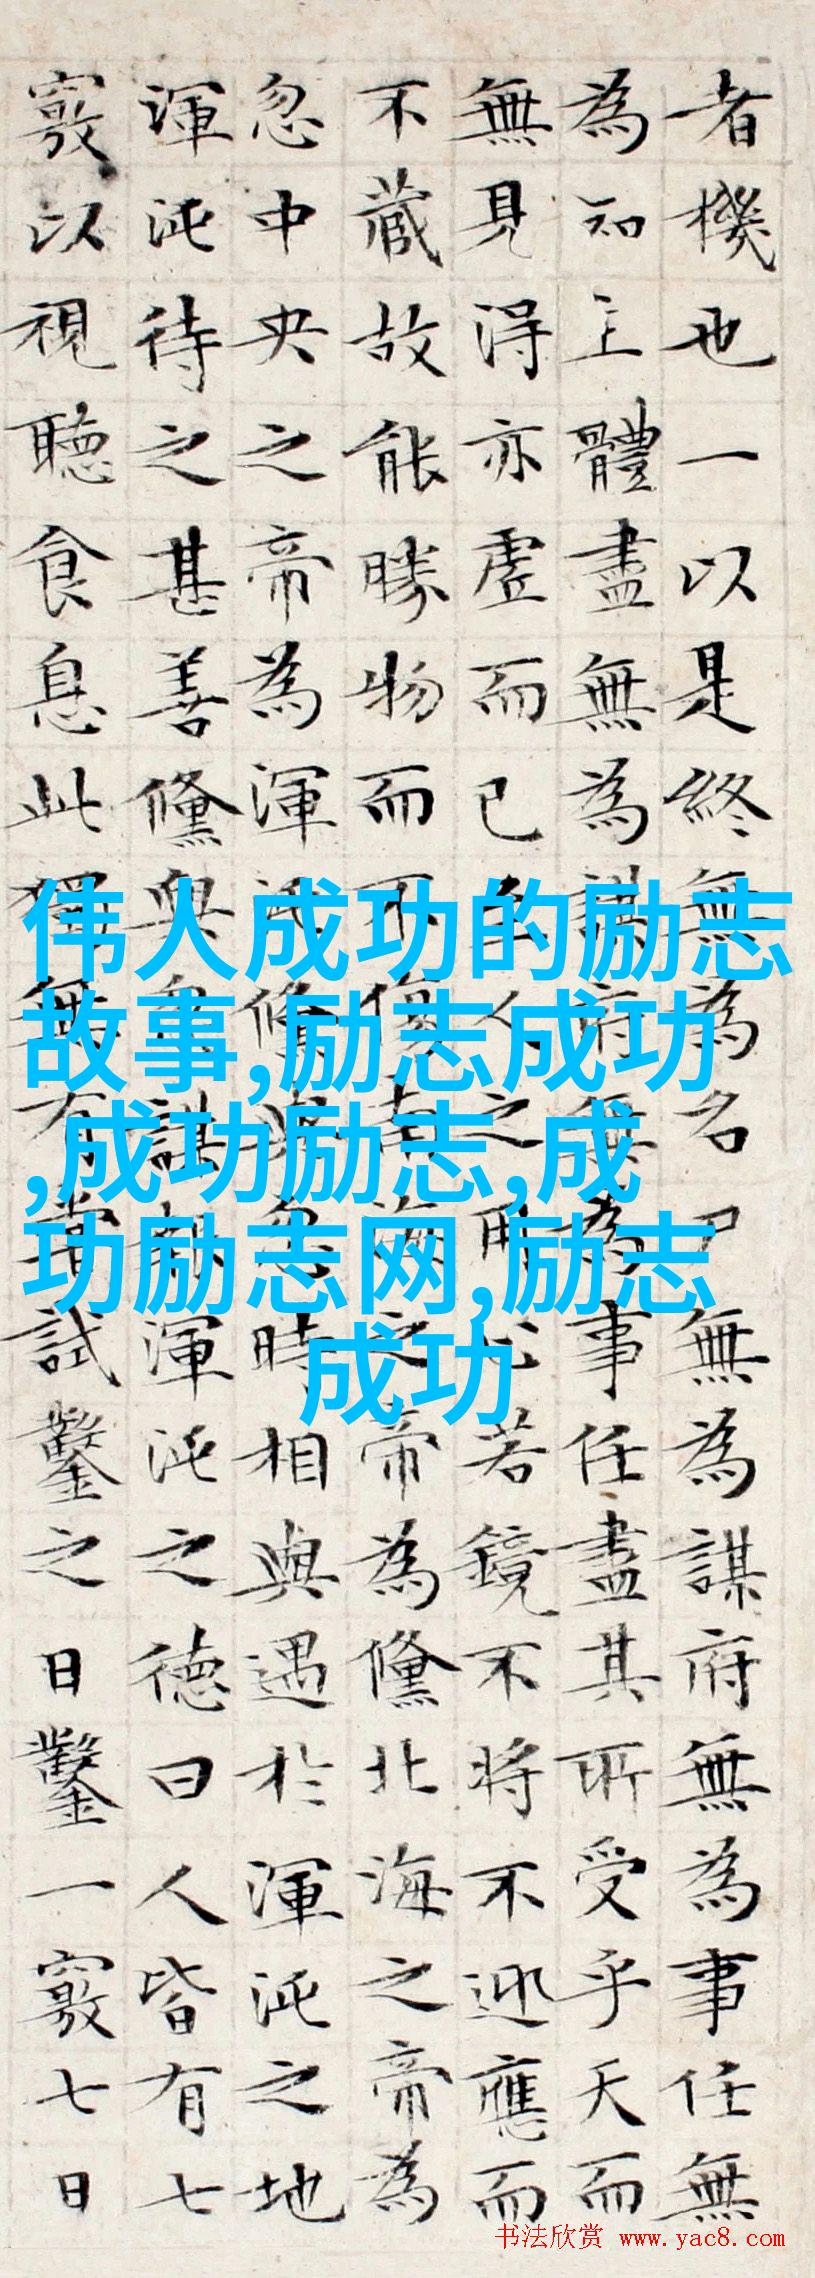 者機也一以是終無為名尸無為謀府無為事任無
為知主體盡無為謀府無為事任盡其所受乎天而
無見得亦虛而已至人之用心若鏡不將不迎應而
不藏故能勝物而不傷南海之帝為儵北海之帝為
忽中央之帝為渾沌儵與忽時相與遇於渾沌之地
渾沌待之甚善儵與忽謀報渾沌之德曰人皆有七
竅以視聽食息此獨無有嘗試鑿之日鑿一竅七日
伟人成功的励志
故事,励志成功
,成功励志,成
功励志网,励志
成功
书法欣赏 www.yac8.com